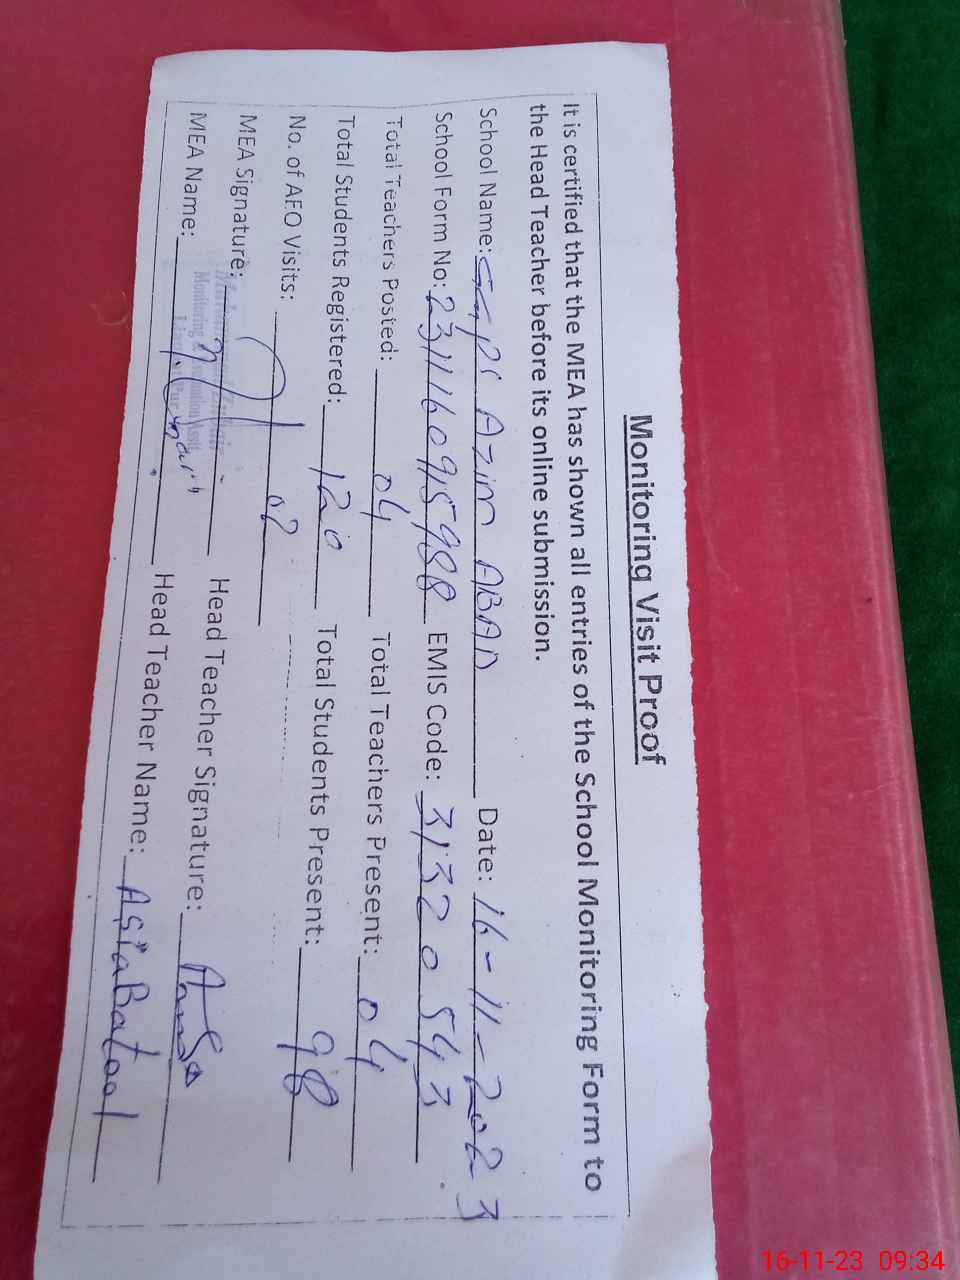 Monitoring Visit Proof
It is certified that the MEA has shown all entries of the School Monitoring Form to
the Head Teacher before its online submission.
School Name: GGPS Azim ABAD Date: 16-11-2023
School Form No: EMIS Code: 31320543
Total Teachers Posted: 04 Total Teachers Present: 04
Total Students Registered: 120 Total Students Present: 98
No. of AEO Visits: 02
MEA Signature: Head Teacher Signature:
MEA Name: Head Teacher Name: Asia Batool
16-11-23 09:34